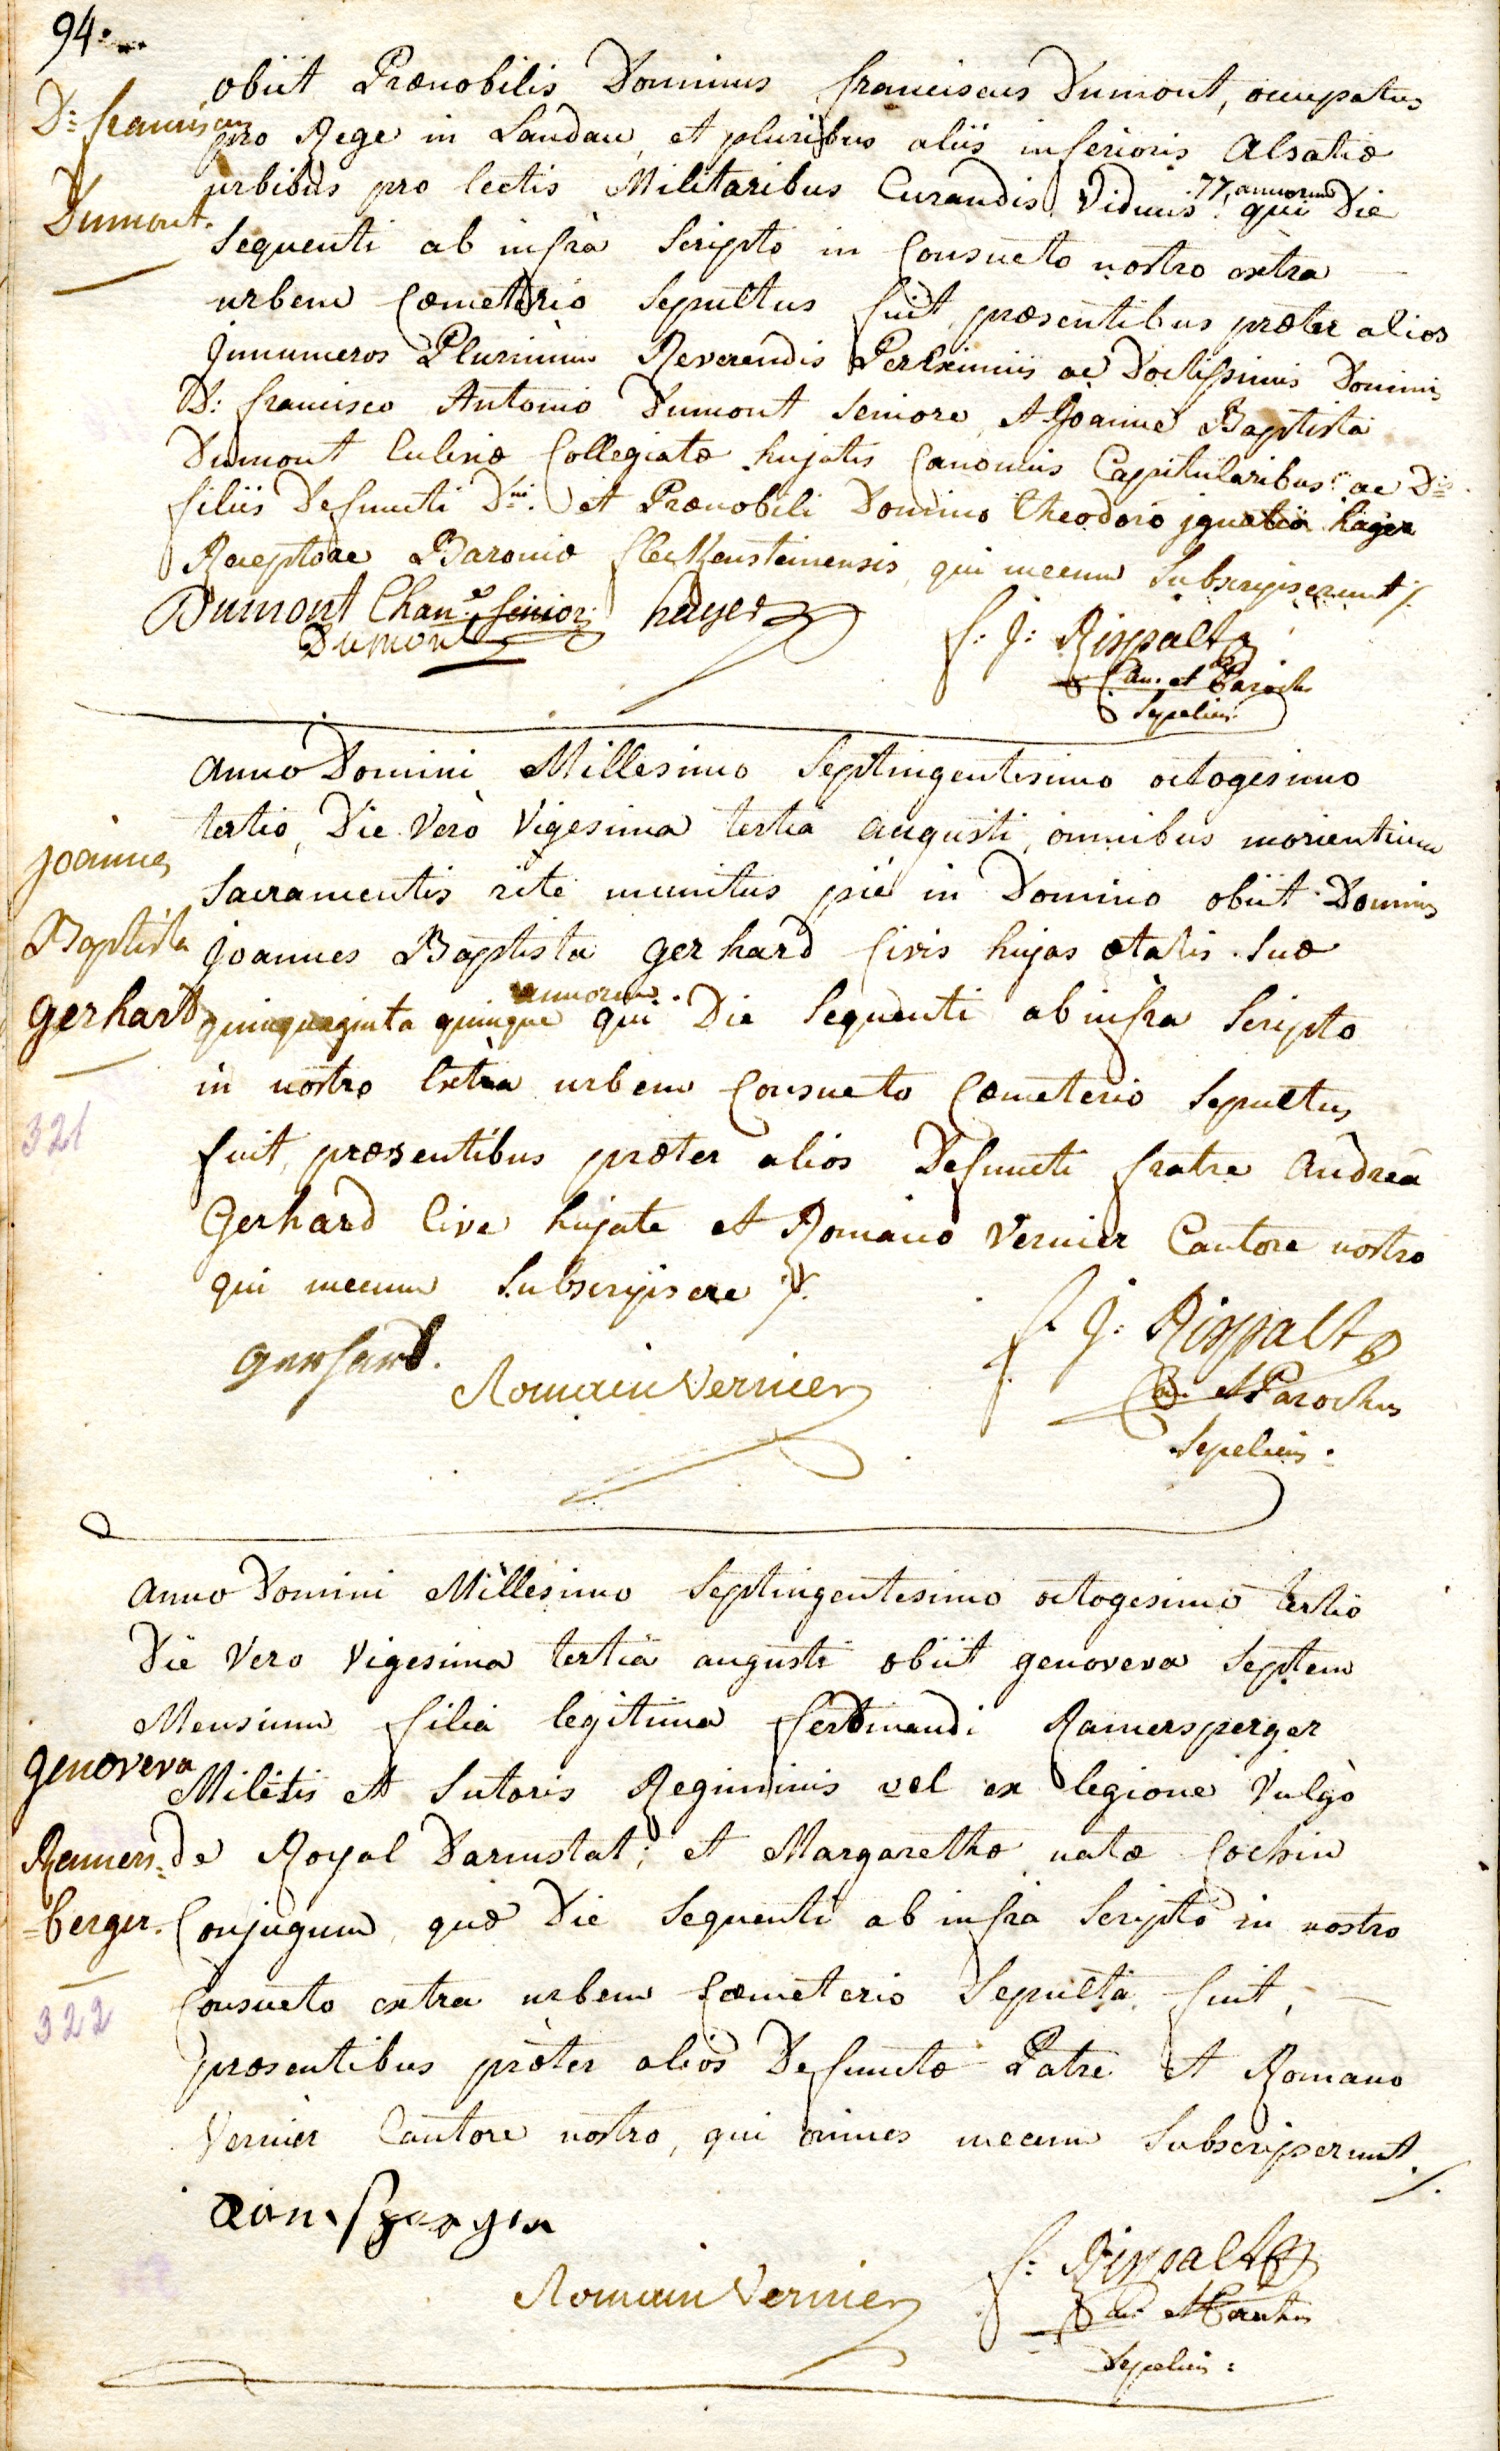 94.
D: franciscus
Dumont.
obiit Prænobilis Dominus franciscus Dumont, occupatus
pro Rege in Landau, et pluribus aliis inferioris Alsatiæ
urbibus pro lectis Militaribus Curandis, Viduus 77 annorum qui Die
Sequenti ab infrà Scripto in Consueto nostro extra
urbem Cœmeterio Sepultus fuit, præsentibus præter alios
Jnnumeros Plurimùm Reverendis Perexímiis ac Doctissimis Dominis
D: francisco Antonio Dumont Seniore, et Joanne Baptista
Dumont Ecclesiæ Collegiatæ hujatis Canonicis Capitularibus ac
filiis Defuncti Dni. et Prænobili Domino Theodoro jgnatio hayer
Receptore Baroniæ fleckensteinensis qui mecum Subscripserunt ./.
Dumont Chane. Senior hayer
Dumont
f: J: Rispalt
Can. et Paroch
Sepeliens
Anno Domini Millesimo Septingentesimo octogesimo
tertio, Die Verò Vigesima tertia augusti, omnibus morientium
Sacramentis ritè munitus piè in Domino obiit Dominus
joannes Baptista gerhard Civis hujas ætatis Suæ
quinquaginta quinque annorum qui Die Sequenti ab infra Scripto
in nostro Extra urbem Consueto Cœmeterio Sepultus
fuit, præsentibus præter alios Defuncti fratre Andreâ
Gerhard Cive hujate et Romano Vernier Cantore nostro
qui mecum Subscripsere ./.
joannes
Baptista
gerhard
321
gerhard.
Romain Vernier
f. J: Rispalt
Can. et Parochus
Sepeliens.
Anno Domini Millesimo Septingentesimo octogesimo tertio
Die Vero Vigesima tertia augusti obiit genoveva Septem
Mensium filia legitima ferdinandi Ramersperger
Militis et Sutoris Regiminis vel ex legione Vulgò
de Royal Darmstat; et Margarethæ natæ Cochin
Conjugum, quæ Die Sequenti ab infra Scripto in nostro
Consueto extra urbem Cœmeterio Sepulta fuit,
præsentibus præter alios Defunctæ Patre et Romano
Vernier Cantore nostro, qui omnes mecum Subscripserunt ./.
genoveva
Ramers=
=berger.
322
Romain Vernier
f: Rispalt
Can. et Parochus
Sepeliens: